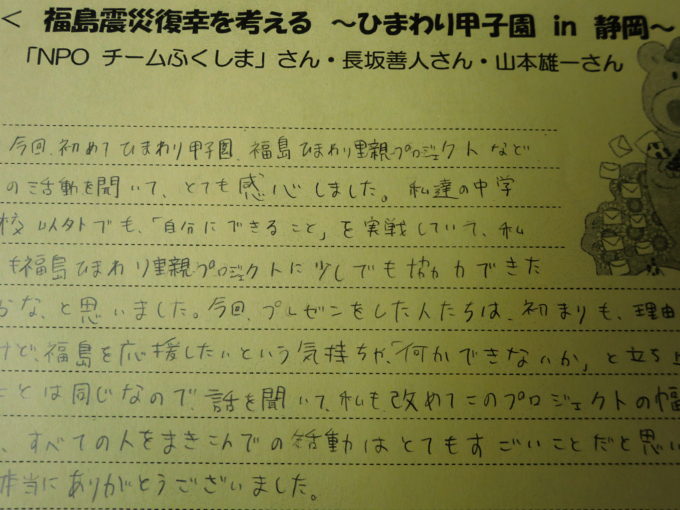 < 福島震災復幸を考える ～ひまわり甲子園 in 静岡～
「NPO チームふくしま」さん・長坂善人さん・山本雄一さん
今回、初めてひまわり甲子園、福島ひまわり里親プロジェクトなど
の活動を聞いて、とても感心しました。私達の中学
校以外でも、「自分にできること」を実戦していて、私
も福島ひまわり里親プロジェクトに少しでも協力できた
らな、と思いました。今回、プレゼンをした人たちは、初まりも、理由
けど、福島を応援したいという気持ちや、「何かできないか」と立ち上
ことは同じなので、話を聞いて、私も、改めてこのプロジェクトの幅
、すべての人をまきこんでの活動はとてもすごいことだと思い
本当にありがとうございました。